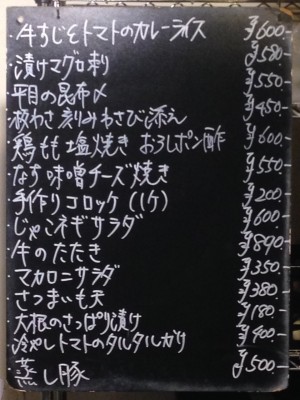 ・牛すじとトマトのカレーライス ¥600-
・漬けマグロ刺 ¥580-
・平目の昆布〆 ¥550-
・板わさ 刻みわさび添え ¥450-
・鶏もも塩焼き おろしポン酢 ¥600-
・なす味噌チーズ焼き ¥550-
・手作りコロッケ(1ケ) ¥200-
・じゃこネギサラダ ¥600-
・牛のたたき ¥890-
・マカロニサラダ ¥350-
・さつまいも天 ¥380-
・大根のさっぱり漬け ¥180-
・冷やしトマトのタルタルがけ ¥400-
・蒸し豚 ¥500-